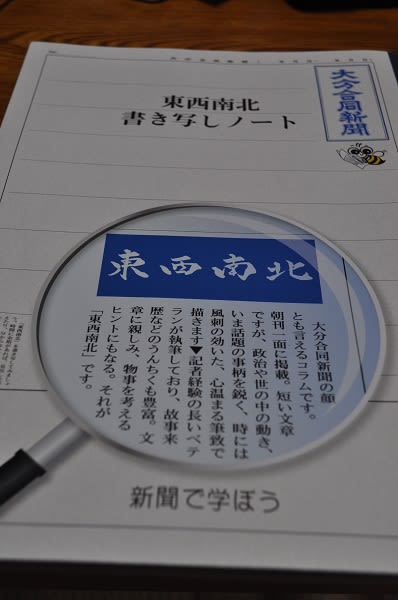 東西南北
書き写しノート
大分合同新聞
東西南北
大分合同新聞の顔
とも言えるコラムです。
朝刊一面に掲載。短い文章
ですが、政治や世の中の動き、
いま話題の事柄を鋭く、時には
風刺の効いた、心温まる筆致で
描きます▼記者経験の長いベテ
ランが執筆しており、故事来
歴などのうんちくも豊富。文
章に親しみ、物事を考える
ヒントにもなる。それが
「東西南北」です。
新聞で学ぼう